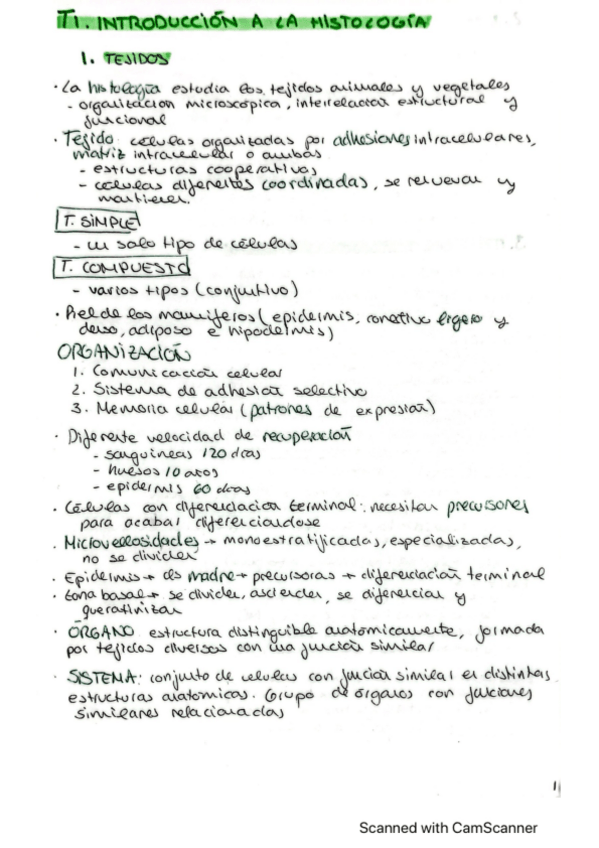 T1. INTRODUCCIÓN A LA HISTOLOGÍA
1. TEJIDOS
· La histología estudia los tejidos animales y vegetales
- organización microscópica, interrelación estructural y
funcional
· Tejido: células organizadas por adhesiones intracelulares,
matriz intracelular o ambas
- estructuras cooperativas
- células diferentes coordinadas, se renuevan y
mantienen.
T. SIMPLE
- un solo tipo de células
T. COMPUESTO
- varios tipos (conjuntivo)
· Piel de los mamíferos (epidermis, conectivo ligero y
denso, adiposo e hipodermis)
ORGANIZACIÓN
1. Comunicación celular
2. Sistema de adhesión selectiva
3. Memoria celular (patrones de expresión)
· Diferente velocidad de recuperación
- sanguíneas 120 días
- huesos 10 años
- epidermis 60 días
· Células con diferenciación terminal: necesitan precursores
para acabar diferenciándose
· Microvellosidades → monoestratificadas, especializadas,
no se dividen
· Epidermis → cls madre → precursoras → diferenciación terminal
· Zona basal → se dividen, ascienden, se diferencian y
queratinizan
· ÓRGANO: estructura distinguible anatómicamente, formada
por tejidos diversos con una función similar
· SISTEMA: conjunto de células con función similar en distintas
estructuras anatómicas. Grupo de órganos con funciones
similares relacionadas
1
Scanned with CamScanner